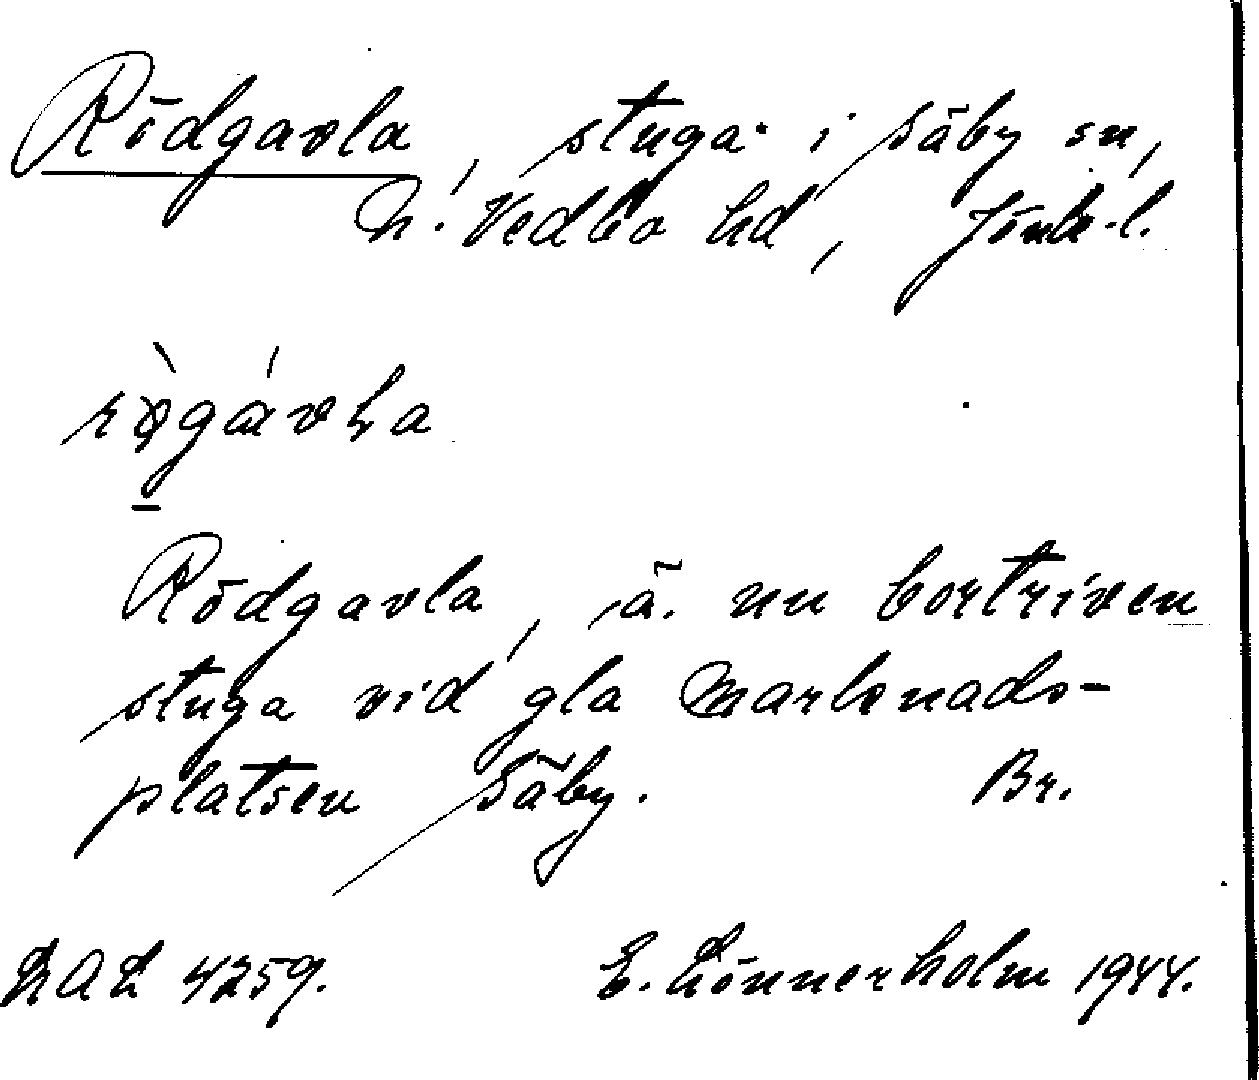 Rödgavla, stuga i Säby sn,
N. Vedbo hd, Jönk. l.
rǿgávla
Rödgavla, ä. nu bortriven
stuga vid gla Marknads-
platsen Säby. Br.
LAL 4259. E. Lönnerholm 1944.